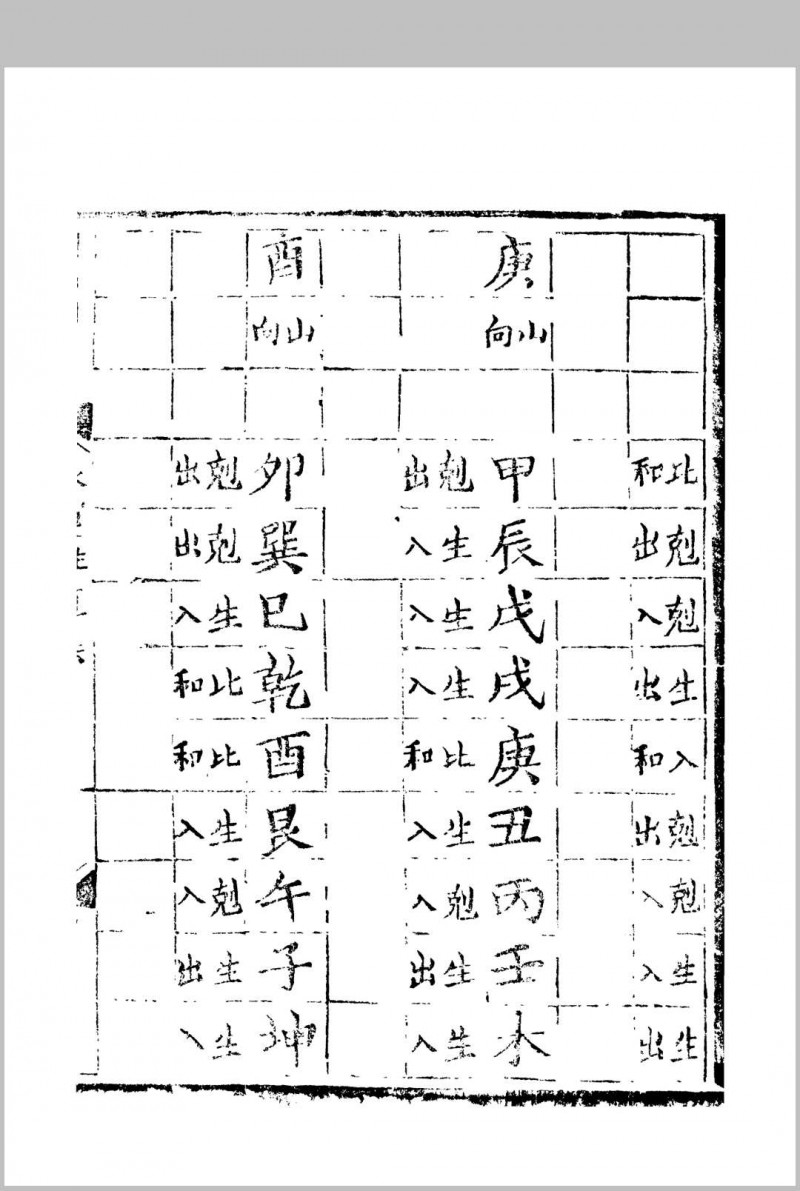 比和 剋出 剋入 生出 入和 剋出 剋入 生入 生出
庚 山向 甲 辰 戊 戌 庚 丑 丙 壬 木
剋出 生入 生入 生入 比和 生入 剋入 生出 生入
酉 山向 卯 巽 巳 乾 酉 艮 午 子 坤
剋出 剋出 生入 比和 比和 生入 剋入 生出 生入